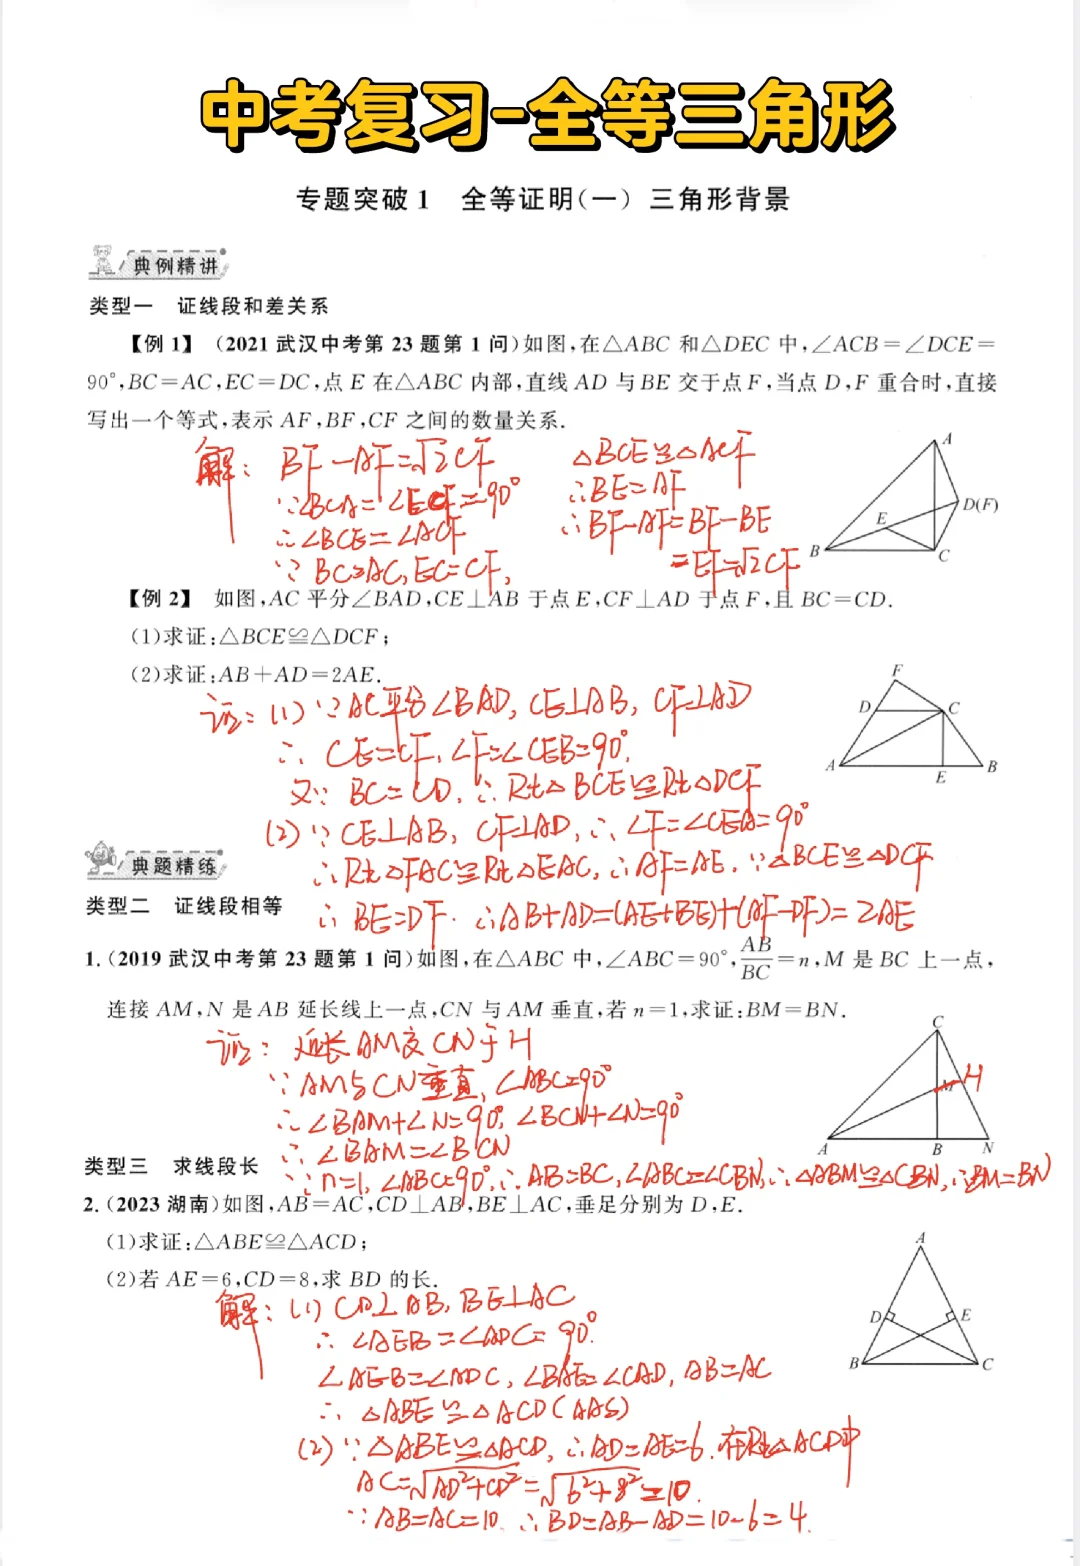 中考复习-全等三角形
专题突破1 全等证明(一) 三角形背景
典例精讲
类型一 证线段和差关系
【例1】 (2021武汉中考第23题第1问)如图,在△ABC和△DEC中,∠ACB=∠DCE=
90°,BC=AC,EC=DC,点E在△ABC内部,直线AD与BE交于点F,当点D,F重合时,直接
写出一个等式,表示AF,BF,CF之间的数量关系.
解: BF-AF=√2CF
∵∠BCA=∠ECF=90°
∴∠BCE=∠ACF
∵BC=AC,EC=CF,
△BCE≌△ACF
∴BE=AF
∴BF-AF=BF-BE
=EF=√2CF
A
D(F)
E
B
C
【例2】 如图,AC平分∠BAD,CE⊥AB于点E,CF⊥AD于点F,且BC=CD.
(1)求证:△BCE≌△DCF;
(2)求证:AB+AD=2AE.
证:(1)∵AC平分∠BAD,CE⊥AB,CF⊥AD
∴CE=CF,∠F=∠CEB=90°.
又∵BC=CD,∴Rt△BCE≌Rt△DCF
(2)∵CE⊥AB,CF⊥AD,∴∠F=∠CEA=90°
∴Rt△FAC≌Rt△EAC,∴AF=AE.∵△BCE≌△DCF
∴BE=DF.∴AB+AD=(AE+BE)+(AF-DF)=2AE
F
D
C
A
E
B
典题精练
类型二 证线段相等
1.(2019武汉中考第23题第1问)如图,在△ABC中,∠ABC=90°,AB/BC=n,M是BC上一点,
连接AM,N是AB延长线上一点,CN与AM垂直,若n=1,求证:BM=BN.
证:延长AM交CN于H
∵AM与CN垂直,∠ABC=90°
∴∠BAM+∠N=90°,∠BCN+∠N=90°
∴∠BAM=∠BCN
∵n=1,∠ABC=90°,∴AB=BC,∠ABC=∠CBN,∴△ABM≌△CBN,∴BM=BN
C
M
H
A
B
N
类型三 求线段长
2.(2023湖南)如图,AB=AC,CD⊥AB,BE⊥AC,垂足分别为D,E.
(1)求证:△ABE≌△ACD;
(2)若AE=6,CD=8,求BD的长.
解:(1)CD⊥AB,BE⊥AC
∴∠AEB=∠ADC=90°.
∠AEB=∠ADC,∠BAE=∠CAD,AB=AC
∴△ABE≌△ACD(AAS)
(2)∵△ABE≌△ACD,∴AD=AE=6.在Rt△ACD中
AC=√AD²+CD²=√6²+8²=10.
∵AB=AC=10.∴BD=AB-AD=10-6=4.
A
D
E
B
C